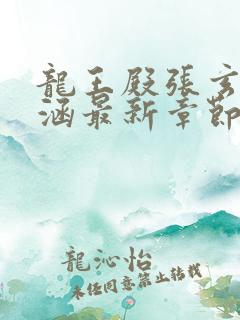 龍王殿張玄
涵最新章節
龍沁怡
未经同意禁止转载